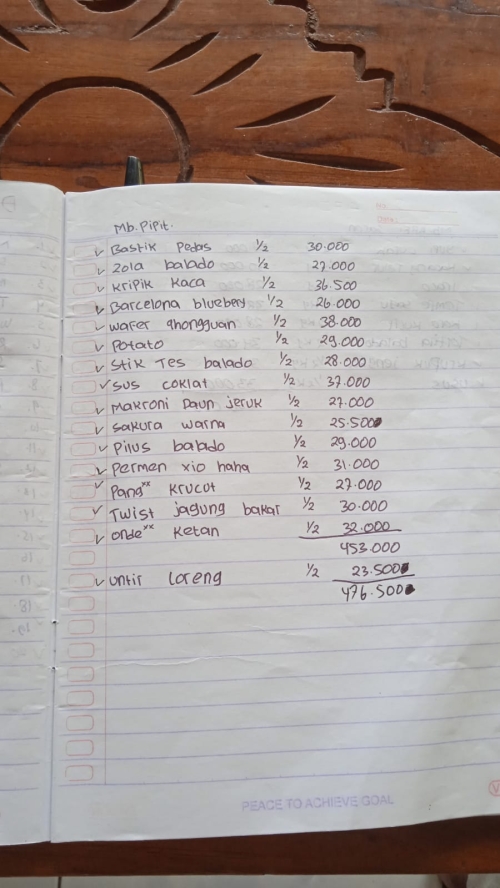 Mb. Pipit.
Bastik Pedas 1/2 30.000
Zola balado 1/2 27.000
Kripik Kaca 1/2 36.500
Barcelona blueberry 1/2 26.000
Wafer ghongguan 1/2 38.000
Potato 1/2 29.000
Stik Tes balado 1/2 28.000
Sus coklat 1/2 37.000
Makroni Daun jeruk 1/2 27.000
Sakura warna 1/2 25.500
Pilus balado 1/2 29.000
Permen xio haha 1/2 31.000
Pang** Krucut 1/2 27.000
Twist jagung bakar 1/2 30.000
Onde** Ketan 1/2 32.000
453.000
Untir Loreng 1/2 23.500
476.500
PEACE TO ACHIEVE GOAL